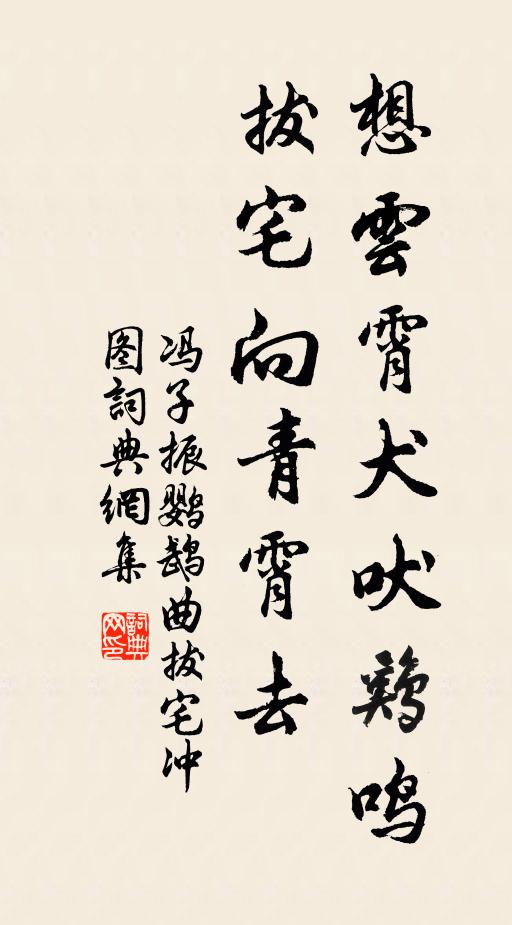 想雲霄犬吠鷄鸣
拔宅向青霄去
冯子振鹦鹉曲拔宅冲
图詞典網集
詞典网印